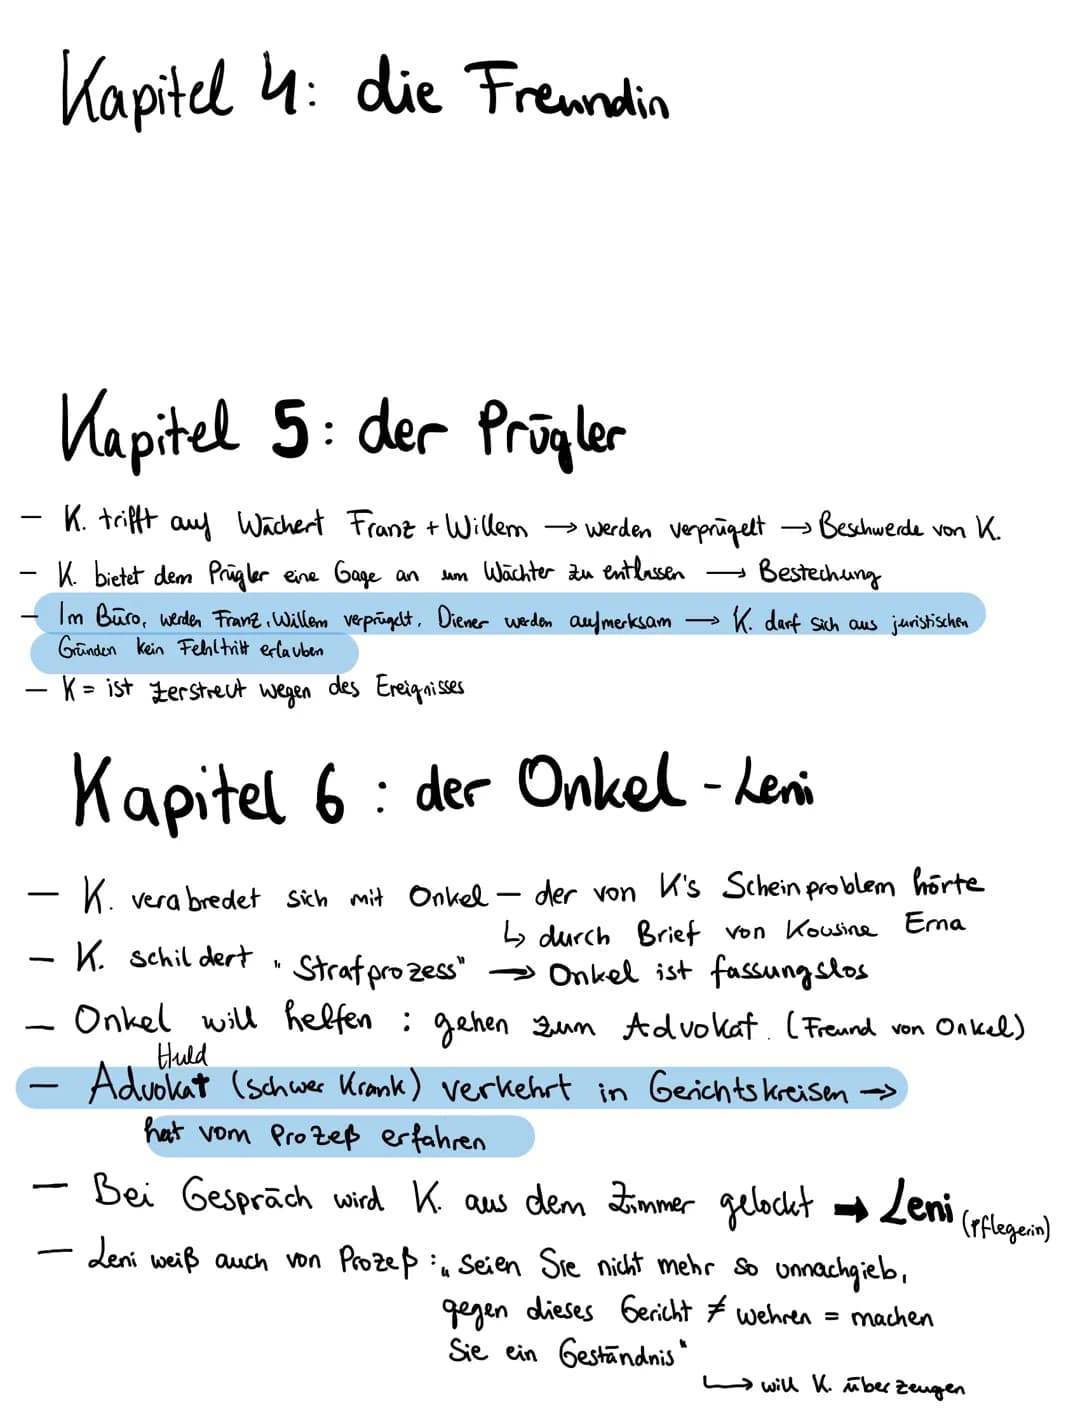 Kapitel 4: die Freundin
Kapitel 5: der Prügler
– K. trifft auf Wächert Franz + Willem → werden verprügelt → Beschwerde von K.
– K. bietet dem Prügler eine Gage an um Wächter zu entlassen → Bestechung
– Im Büro, werden Franz, Willem verprügelt, Diener werden aufmerksam → K. darf sich aus juristischen
Gründen kein Fehltritt erlauben
– K = ist zerstreut wegen des Ereignisses
Kapitel 6 : der Onkel - Leni
– K. verabredet sich mit Onkel – der von K's Scheinproblem hörte
↳ durch Brief von Kousine Erna
– K. schildert "Strafprozess" → Onkel ist fassungslos
– Onkel will helfen : gehen zum Advokat. (Freund von Onkel)
Huld
– Advokat (schwer Krank) verkehrt in Gerichtskreisen →
hat vom Prozeß erfahren
– Bei Gespräch wird K. aus dem Zimmer gelockt → Leni (Pflegerin)
– Leni weiß auch von Prozeß : „Seien Sie nicht mehr so unnachgieb,
gegen dieses Gericht ≠ wehren = machen
Sie ein Geständnis"
↳ will K. überzeugen